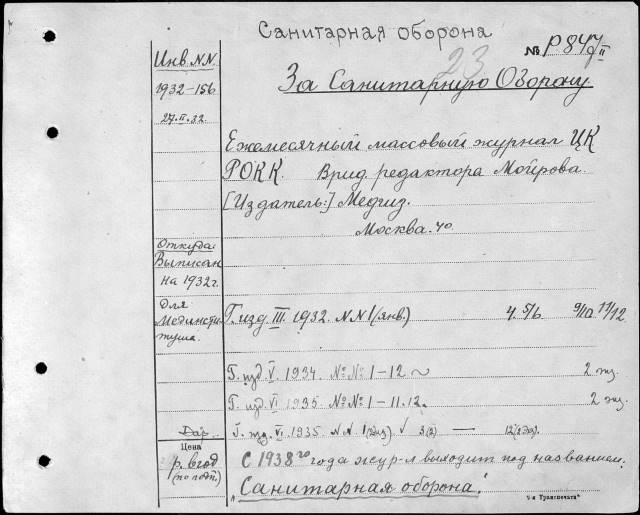 Санитарная оборона
23
№ Р847/II
За Санитарную Оборону
Инв. N.N.
1932-156
27.II.32.
Ежемесячный массовый журнал ЦК
РОКК. Врид. редактора Мойрова.
[Издатель:] Медгиз.
Москва.
Откуда:
Выписан
на 1932 г.
Для
Мединсти-
туша.
Г. изд. III. 1932. N.N 1 (янв.) 4. 5/6. 9/10 11/12.
Г. изд. V. 1934. №№ 1-12 2 эк.
Г. изд. VI 1935. №№ 1-11. 12. 2 эк.
Дар.
Г. изд. VI. 1935. N.N. 1 (2эк) 3(2) — 12 (2эк).
Цена
р. в год
(по подп.)
С 1938 го года жур-л выходит под названием:
„Санитарная оборона."